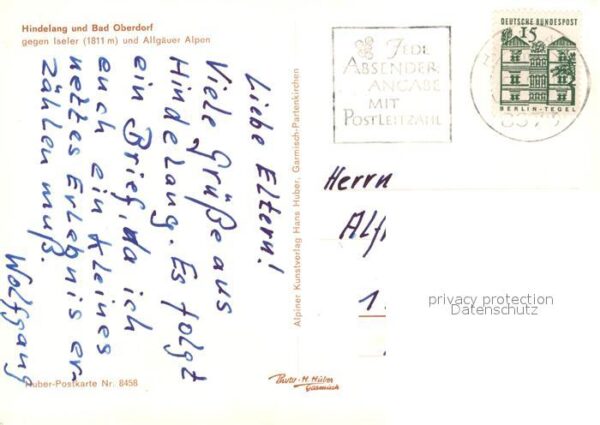 Hindelang und Bad Oberdorf
gegen Iseler (1811 m) und Allgäuer Alpen
Liebe Eltern!
Viele Grüße aus
Hindelang. Es folgt
ein Brief, da ich
euch ein kleines
nettes Erlebnis er-
zählen muß.
Wolfgang
Huber-Postkarte Nr. 8458
Alpiner Kunstverlag Hans Huber, Garmisch-Partenkirchen
Photo-H. Huber
Garmisch
JEDE
ABSENDER
ANGABE
MIT
POSTLEITZAHL
DEUTSCHE BUNDESPOST
15
BERLIN-TEGEL
Herrn
Alf
1
privacy protection
Datenschutz